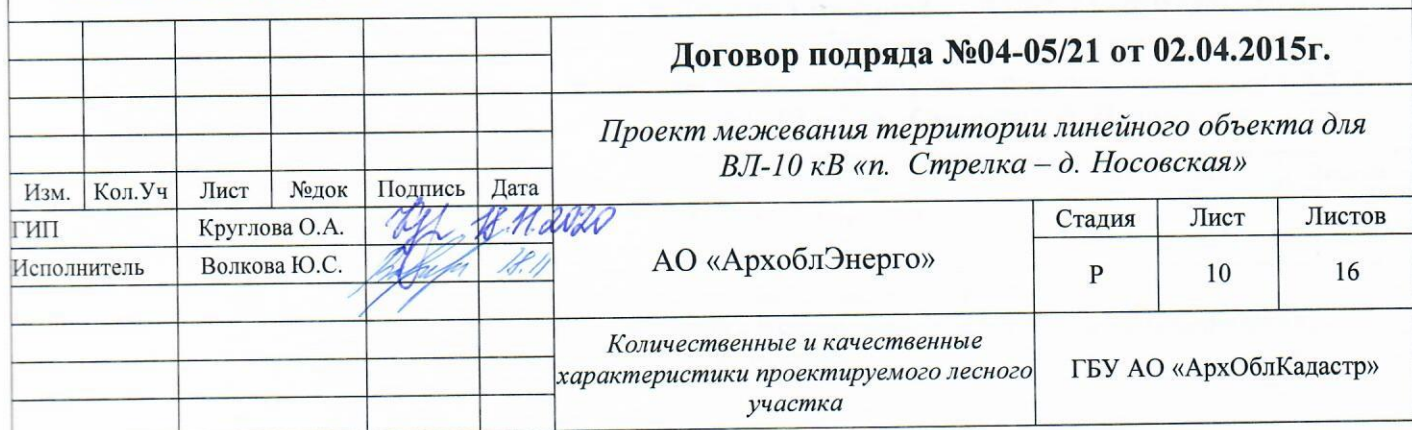 Договор подряда №04-05/21 от 02.04.2015г.
Проект межевания территории линейного объекта для
ВЛ-10 кВ «п. Стрелка – д. Носовская»
Изм. Кол.Уч Лист №док Подпись Дата
ГИП Круглова О.А. 18.11.2020
Исполнитель Волкова Ю.С. 18.11
АО «АрхоблЭнерго»
Стадия Лист Листов
Р 10 16
Количественные и качественные
характеристики проектируемого лесного
участка
ГБУ АО «АрхОблКадастр»